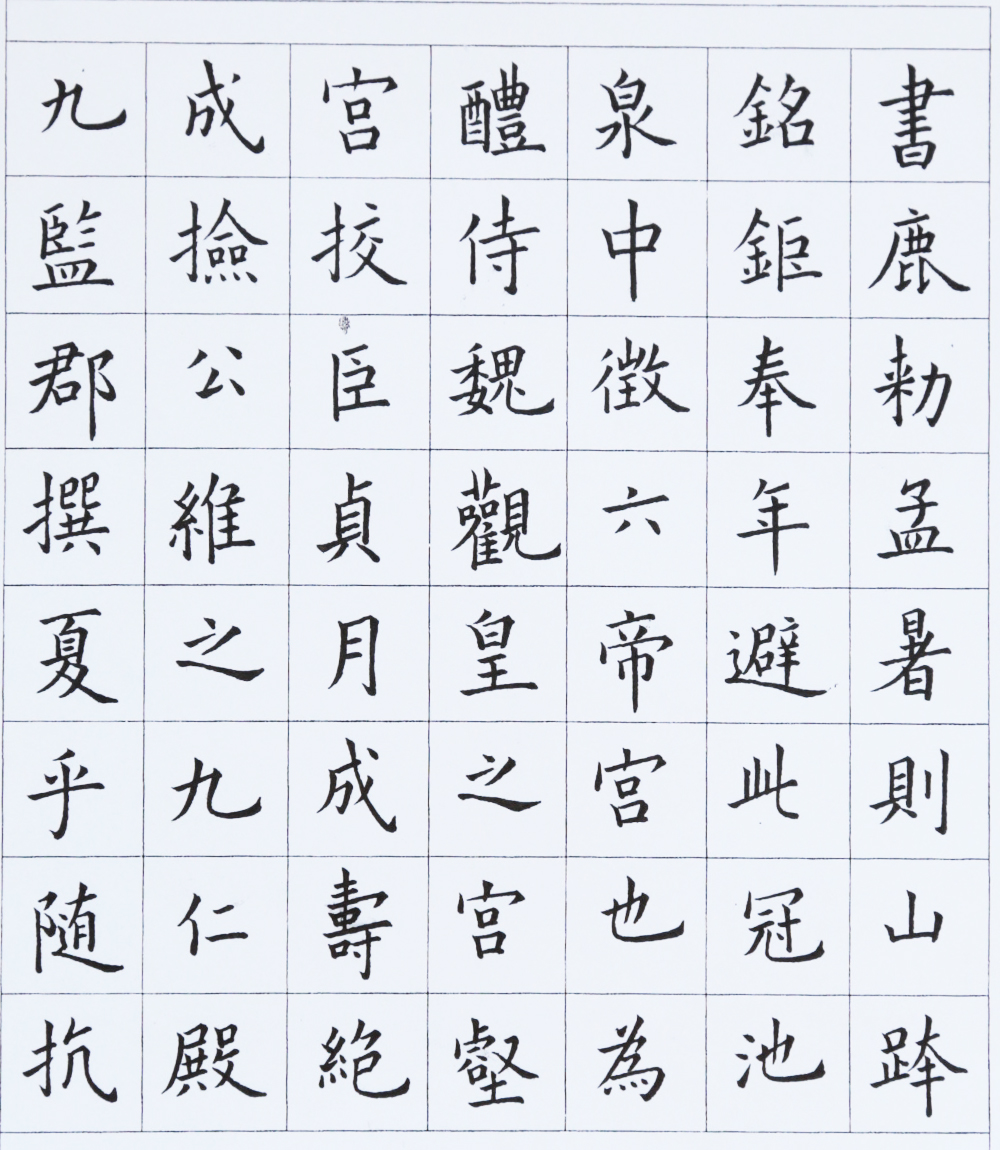 九成宫醴泉銘書
監撿挍侍中鉅鹿
郡公臣魏徵奉勑
撰維貞觀六年孟
夏之月皇帝避暑
乎九成之宫此則
随仁壽宫也冠山
抗殿絶壑為池跨